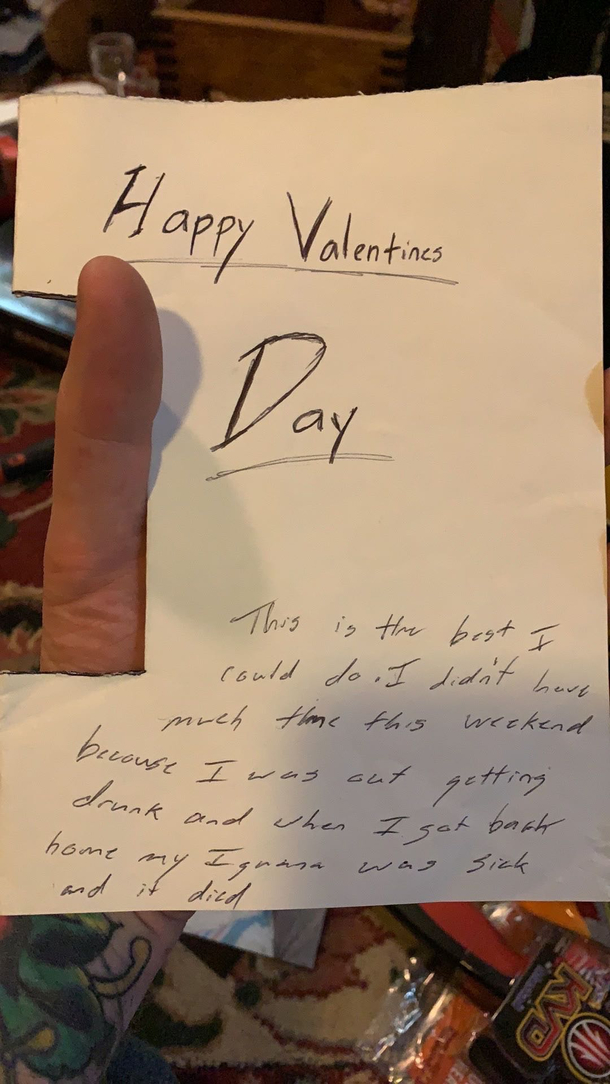 Happy Valentines
Day
This is the best I
could do. I didn't have
much time this weekend
because I was out getting
drunk and when I got back
home my Iguana was sick
and it died
KVD